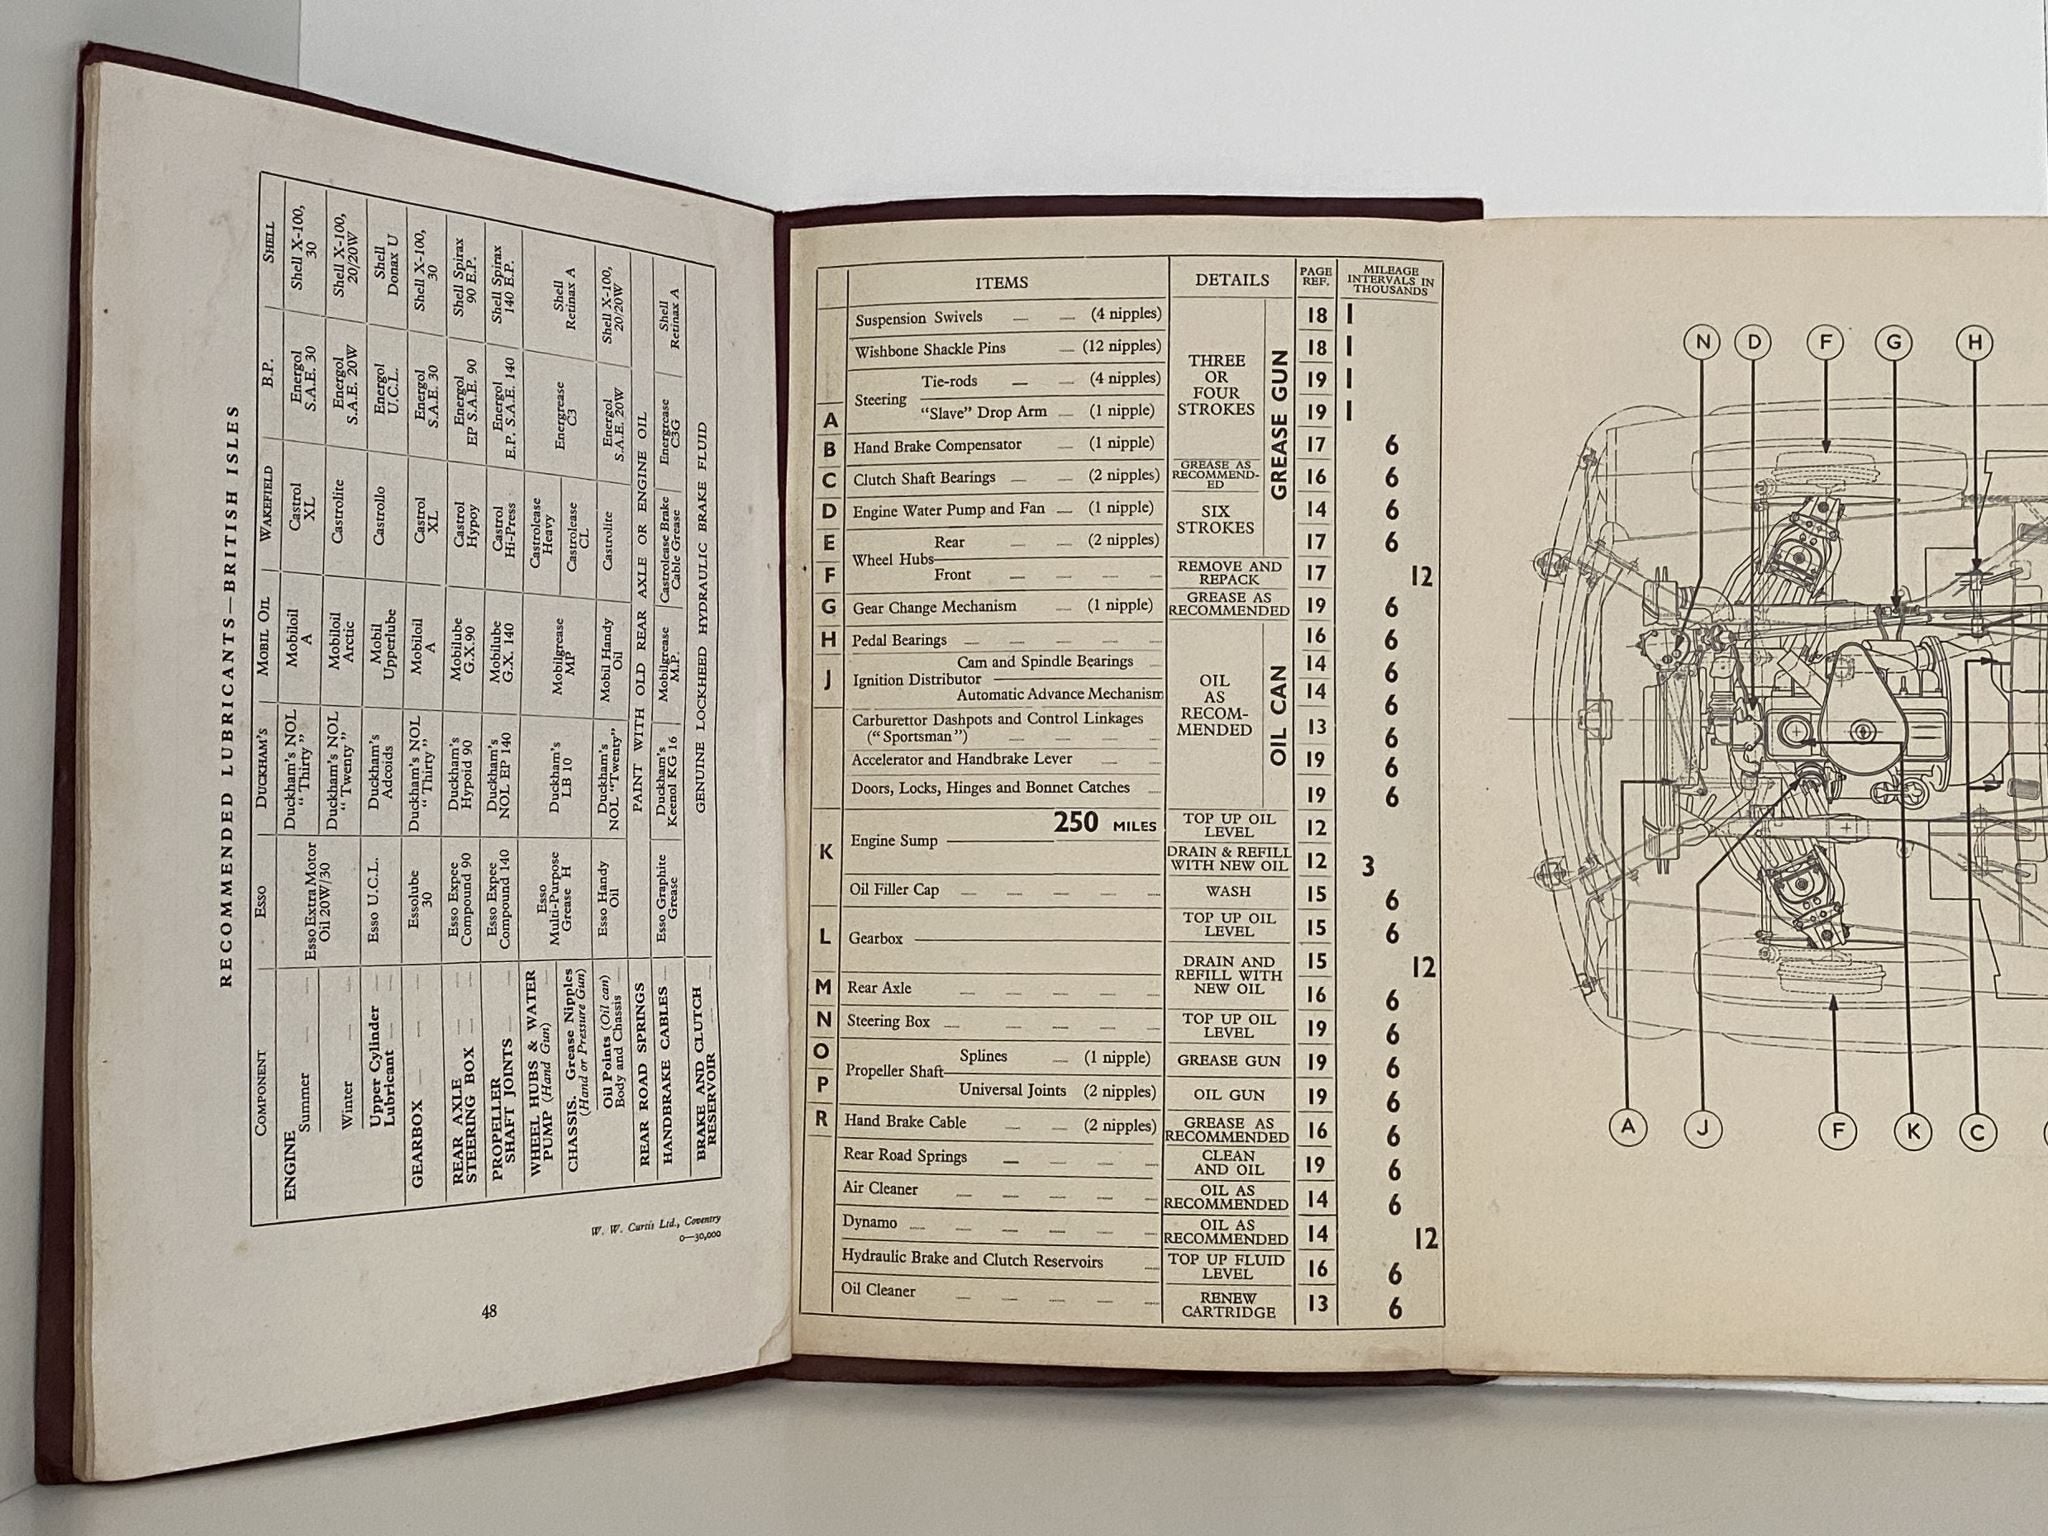 RECOMMENDED LUBRICANTS—BRITISH ISLES
COMPONENT ESSO DUCKHAM'S MOBIL OIL WAKEFIELD B.P. SHELL
ENGINE
Summer Esso Extra Motor Oil 20W/30 Duckham's NOL "Thirty" Mobiloil A Castrol XL Energol S.A.E. 30 Shell X-100, 30
Winter Duckham's NOL "Twenty" Mobiloil Arctic Castrolite Energol S.A.E. 20W Shell X-100, 20/20W
Upper Cylinder Lubricant Esso U.C.L. Duckham's Adcoids Mobil Upperlube Castrollo Energol U.C.L. Shell Donax U
GEARBOX Essolube 30 Duckham's NOL "Thirty" Mobiloil A Castrol XL Energol S.A.E. 30 Shell X-100, 30
REAR AXLE STEERING BOX Esso Expee Compound 90 Duckham's Hypoid 90 Mobilube G.X.90 Castrol Hypoy Energol EP S.A.E. 90 Shell Spirax 90 E.P.
PROPELLER SHAFT JOINTS Esso Expee Compound 140 Duckham's NOL EP 140 Mobilube G.X. 140 Castrol Hi-Press Energol E.P. S.A.E. 140 Shell Spirax 140 E.P.
WHEEL HUBS & WATER PUMP (Hand Gun) Esso Multi-Purpose Grease H Duckham's LB 10 Mobilgrease MP Castrolease Heavy Energrease C3 Shell Retinax A
CHASSIS. Grease Nipples (Hand or Pressure Gun) Castrolease CL
Oil Points (Oil can) Body and Chassis Esso Handy Oil Duckham's NOL "Twenty" Mobil Handy Oil Castrolite Energol S.A.E. 20W Shell X-100, 20/20W
REAR ROAD SPRINGS PAINT WITH OLD REAR AXLE OR ENGINE OIL
HANDBRAKE CABLES Esso Graphite Grease Duckham's Keenol KG 16 Mobilgrease M.P. Castrolease Brake Cable Grease Energrease C3G Shell Retinax A
BRAKE AND CLUTCH RESERVOIR GENUINE LOCKHEED HYDRAULIC BRAKE FLUID
W. W. Curtis Ltd., Coventry
0—30,000
48
ITEMS DETAILS PAGE REF. MILEAGE INTERVALS IN THOUSANDS
Suspension Swivels (4 nipples) THREE OR FOUR STROKES GREASE GUN 18 1
Wishbone Shackle Pins (12 nipples) 18 1
Steering Tie-rods (4 nipples) 19 1
A "Slave" Drop Arm (1 nipple) 19 1
B Hand Brake Compensator (1 nipple) 17 6
C Clutch Shaft Bearings (2 nipples) GREASE AS RECOMMEND-ED 16 6
D Engine Water Pump and Fan (1 nipple) SIX STROKES 14 6
E Wheel Hubs Rear (2 nipples) 17 6
F Front REMOVE AND REPACK 17 12
G Gear Change Mechanism (1 nipple) GREASE AS RECOMMENDED 19 6
H Pedal Bearings OIL AS RECOM-MENDED OIL CAN 16 6
J Ignition Distributor Cam and Spindle Bearings 14 6
Automatic Advance Mechanism 14 6
Carburettor Dashpots and Control Linkages ("Sportsman") 13 6
Accelerator and Handbrake Lever 19 6
Doors, Locks, Hinges and Bonnet Catches 19 6
K Engine Sump 250 MILES TOP UP OIL LEVEL 12
DRAIN & REFILL WITH NEW OIL 12 3
Oil Filler Cap WASH 15 6
L Gearbox TOP UP OIL LEVEL 15 6
DRAIN AND REFILL WITH NEW OIL 15 12
M Rear Axle 16 6
N Steering Box TOP UP OIL LEVEL 19 6
O Propeller Shaft Splines (1 nipple) GREASE GUN 19 6
P Universal Joints (2 nipples) OIL GUN 19 6
R Hand Brake Cable (2 nipples) GREASE AS RECOMMENDED 16 6
Rear Road Springs CLEAN AND OIL 19 6
Air Cleaner OIL AS RECOMMENDED 14 6
Dynamo OIL AS RECOMMENDED 14 12
Hydraulic Brake and Clutch Reservoirs TOP UP FLUID LEVEL 16 6
Oil Cleaner RENEW CARTRIDGE 13 6
N D F G H
A J F K C